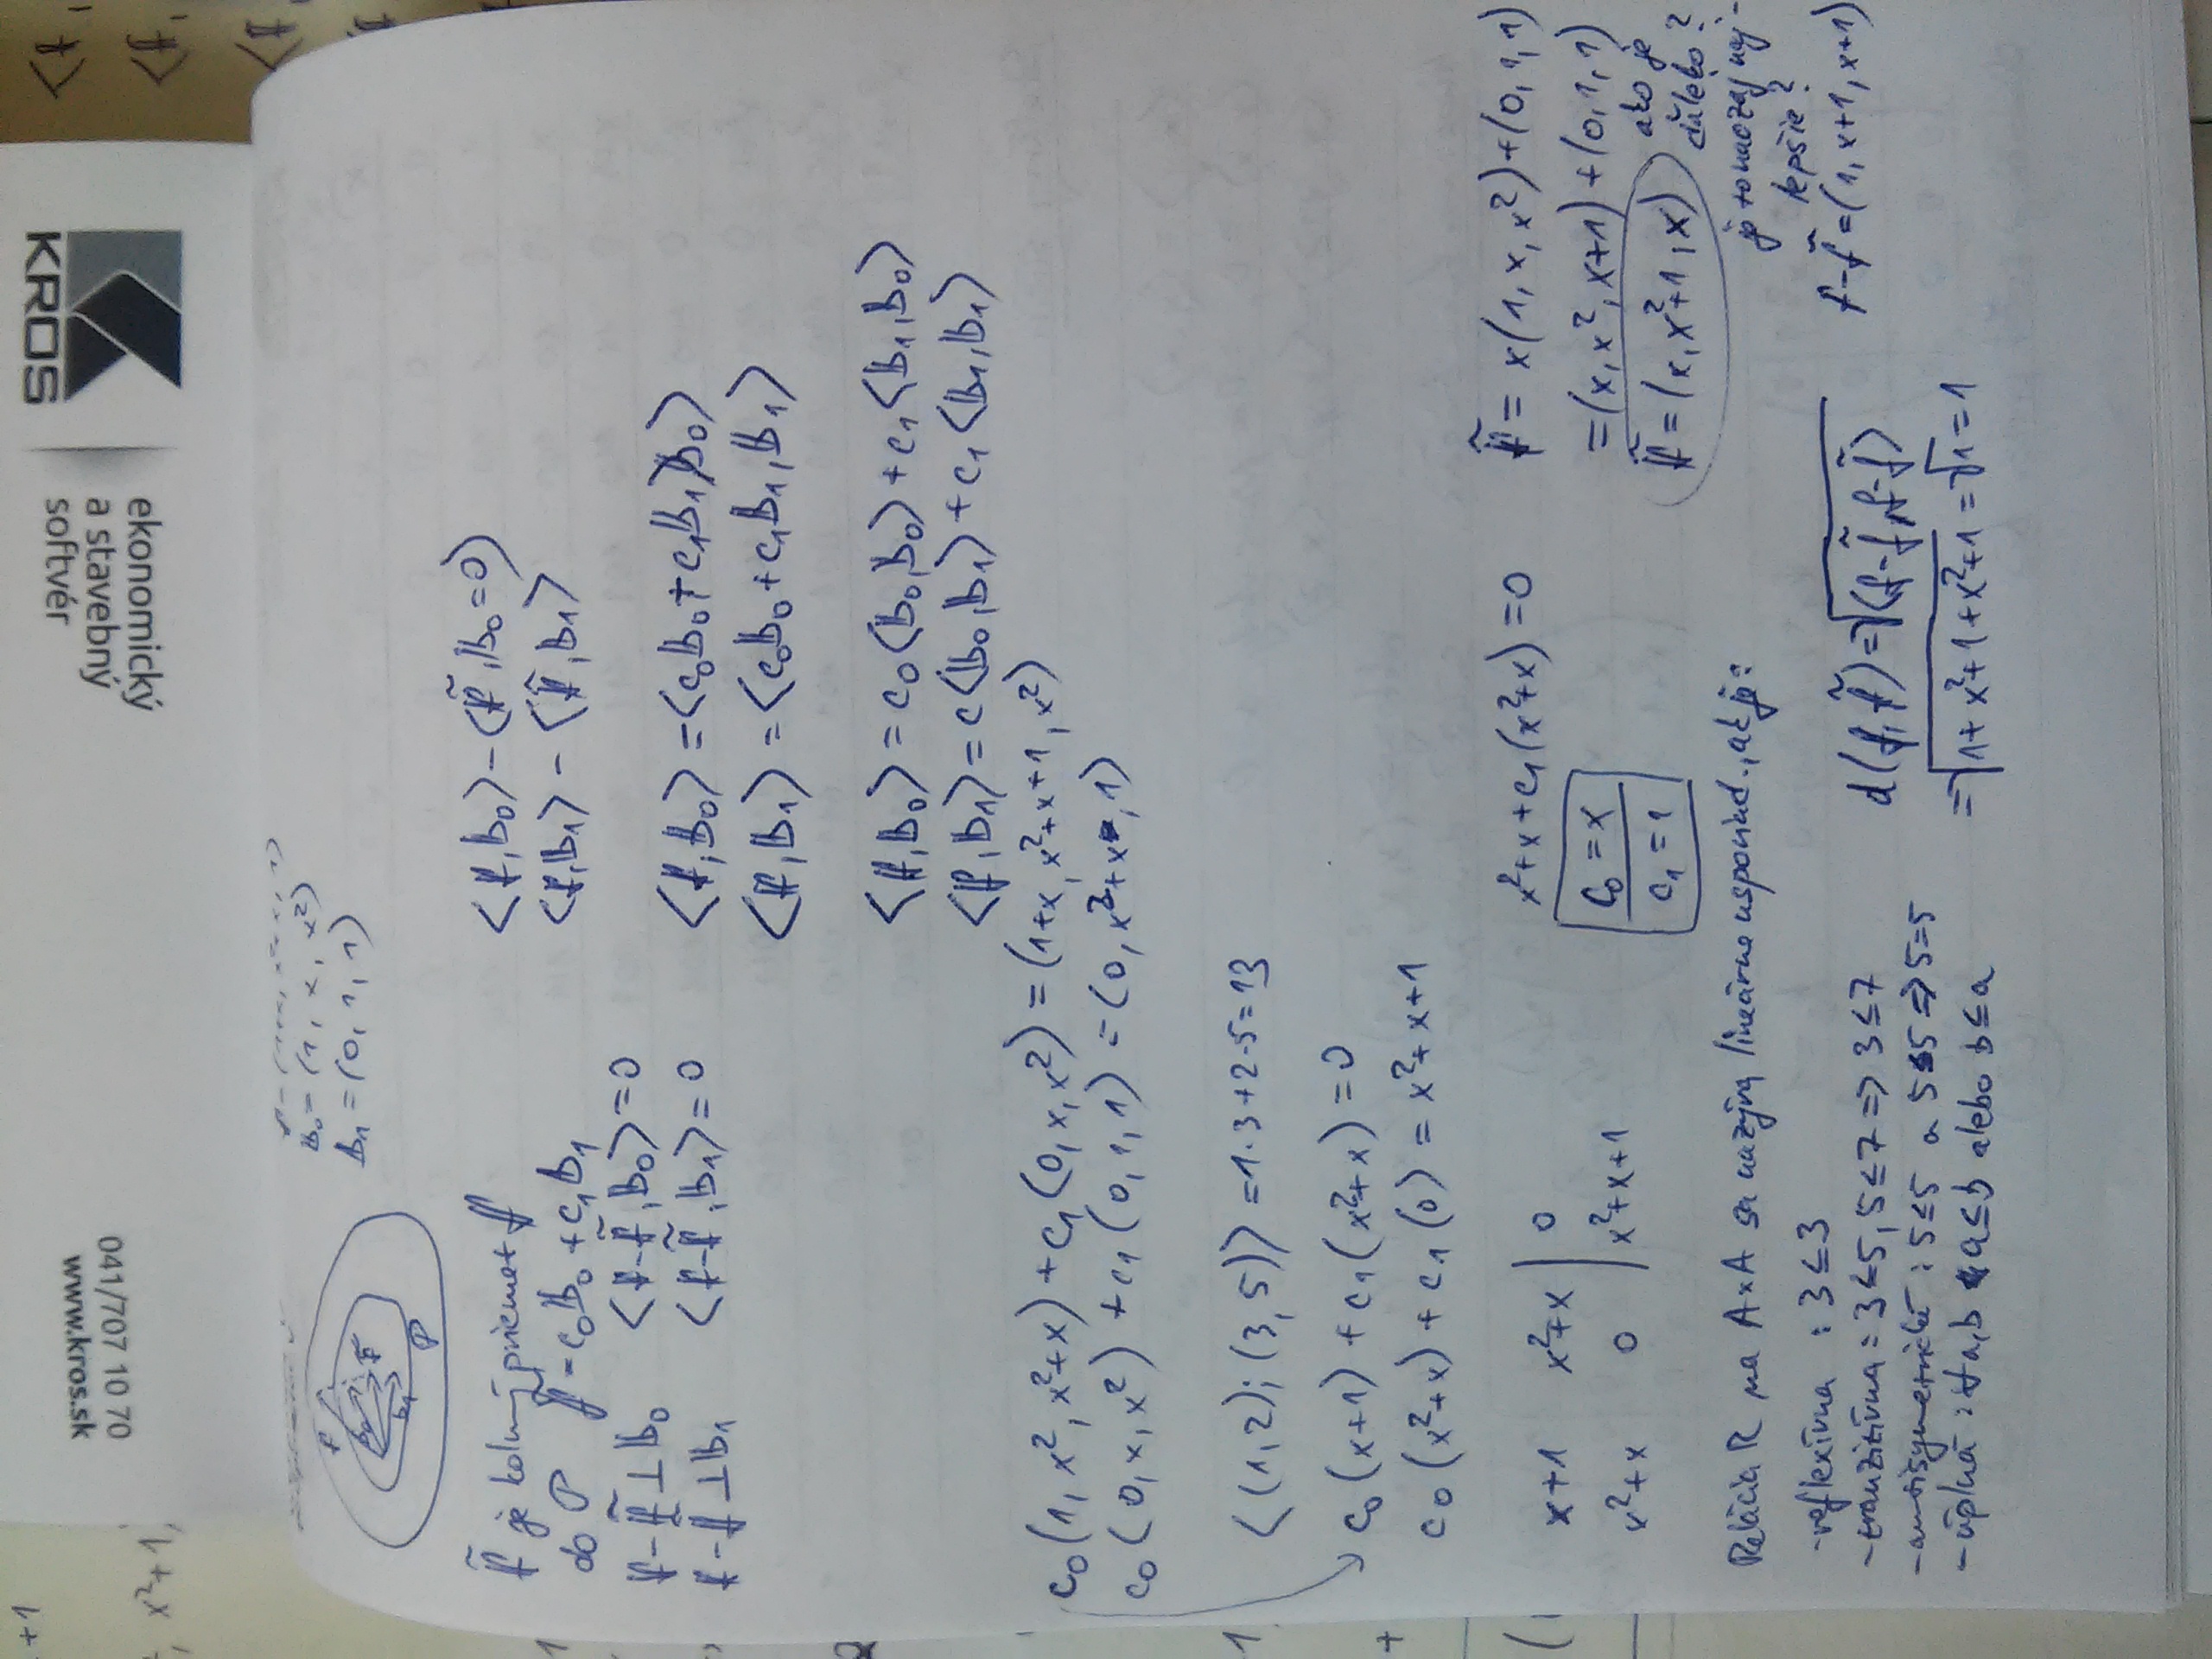 +1
, x²+1,
www.kros.sk
041/707 10 70
ekonomický
a stavebný
softvér
KROS
<f,
<f,
<f,
f = (1+x, x²+x, 1)
b₀ = (1, x, x²)
b₁ = (0, 1, 1)
f
b₀
f̃
b₁
P
f̃ je kolmý priemet f
do P f̃ = c₀b₀ + c₁b₁
f-f̃ ⊥ b₀ <f-f̃, b₀> = 0
f-f̃ ⊥ b₁ <f-f̃, b₁> = 0
<f, b₀> - (f̃, b₀ = 0)
<f, b₁> - <f̃, b₁>
<f, b₀> = <c₀b₀ + c₁b₁, b₀>
<f, b₁> = <c₀b₀ + c₁b₁, b₁>
<f, b₀> = c₀(b₀, b₀) + c₁<b₁, b₀>
<f, b₁> = c<b₀, b₁) + c₁<b₁, b₁)
c₀(1, x², x²+x) + c₁(0, x, x²) = (1+x, x²+x+1, x²)
c₀(0, x, x²) + c₁(0, 1, 1) = (0, x²+x, 1)
<(1,2); (3,5)> = 1·3+2·5 = 13
c₀(x+1) + c₁(x²+x) = 0
c₀(x²+x) + c₁(0) = x²+x+1
x+1 x²+x | 0
x²+x 0 | x²+x+1
x²+x+c₁(x²+x) = 0
c₀ = x
c₁ = 1
f̃ = x(1, x, x²)+(0, 1, 1)
=(x, x², x+1)+(0,1,1)
f̃ = (x, x²+1, x)
ako je
ďaleko?
je to naozaj naj-
lepšie?
f-f̃ = (1, x+1, x+1)
Relácia R na A×A sa nazýva lineárne usporiad., ak je:
-reflexívna : 3 ≤ 3
-tranzitívna : 3 ≤ 5, 5 ≤ 7 => 3 ≤ 7
-antisymetrická : 5 ≤ 5 a 5 ≤ 5 => 5=5
-úplná : ∀a,b a ≤ b alebo b ≤ a
d(f, f̃) = √(f-f̃, f-f̃)
= √1+x²+1+x²+1 = √1 = 1